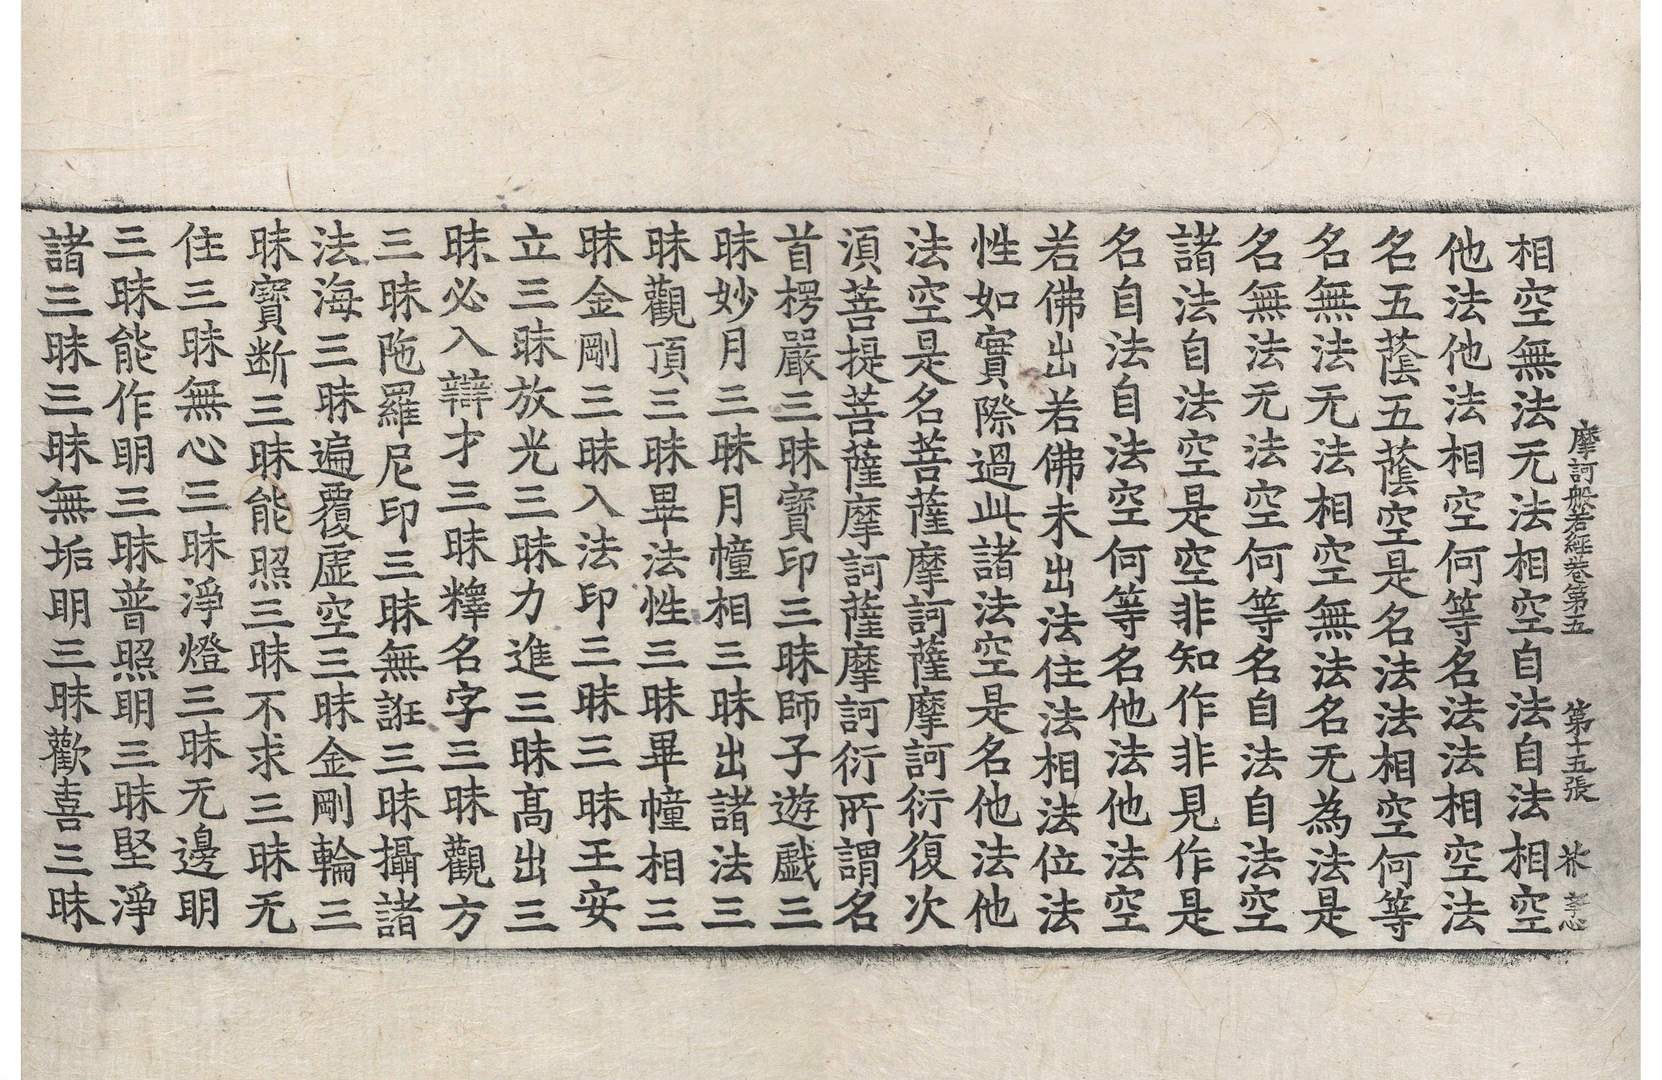 摩訶般若經卷第五　第十五張　芥　孝心
相空無法无法相空自法自法相空
他法他法相空何等名法法相空法
名五蔭五蔭空是名法法相空何等
名無法无法相空無法名无為法是
名無法无法空何等名自法自法空
諸法自法空是空非知作非見作是
名自法自法空何等名他法他法空
若佛出若佛未出法住法相法位法
性如實際過此諸法空是名他法他
法空是名菩薩摩訶薩摩訶衍復次
湏菩提菩薩摩訶薩摩訶衍所謂名
首楞嚴三昧寶印三昧師子遊戲三
昧妙月三昧月幢相三昧出諸法三
昧觀頂三昧畢法性三昧畢幢相三
昧金剛三昧入法印三昧三昧王安
立三昧放光三昧力進三昧髙出三
昧必入辯才三昧釋名字三昧觀方
三昧陁羅尼印三昧無誑三昧攝諸
法海三昧遍覆虛空三昧金剛輪三
昧寶断三昧能照三昧不求三昧无
住三昧無心三昧淨燈三昧无邊明
三昧能作明三昧普照明三昧堅淨
諸三昧三昧無垢明三昧歡喜三昧